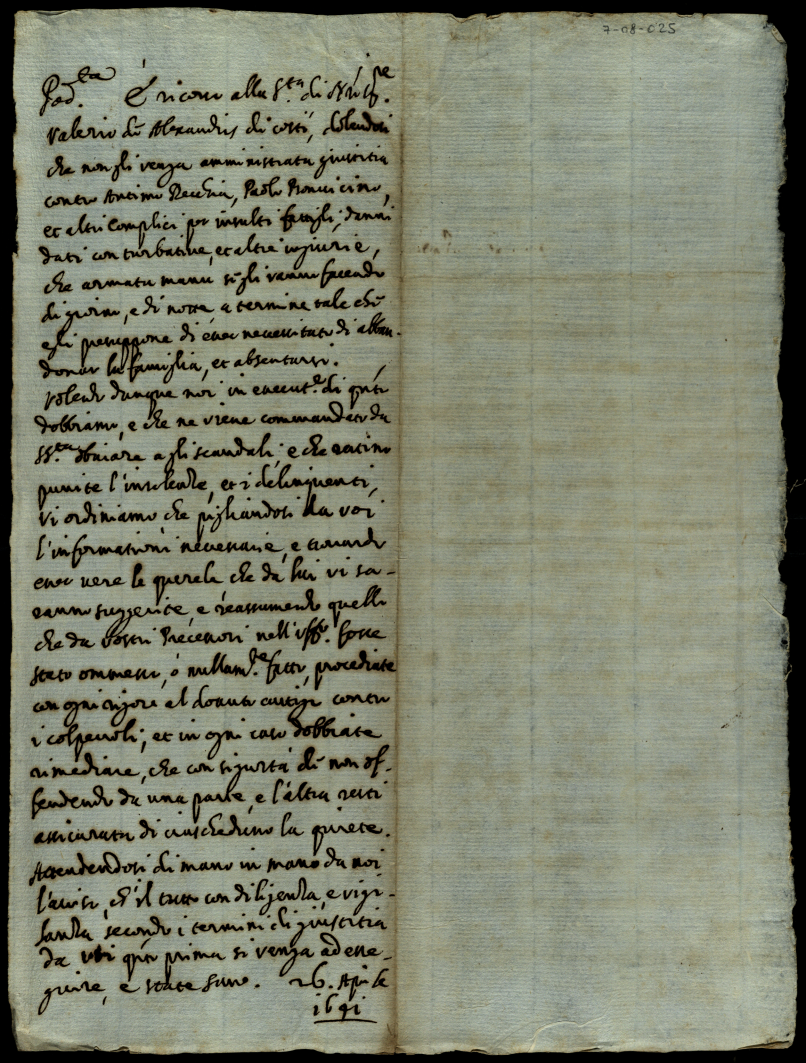 7-08-025
Pod.ta È ricorso alla S.tà di N.ro Sig.re
Valerio de Alexandris di costì, dolendosi
che non gli venga amministrata giustitia
contro Antimo Recchia, Paolo
et altri Complici per insulti fattigli, danni
dati con turbative, et altre ingiurie,
che armata manu se gli vanno facendo
di giorno, e di notte a termine tale che
egli presuppone di esser necessitato di abban-
donar la famiglia, et absentarsi.
Volendo dunque noi in execut.e di q.nto
dobbiamo, e che ne viene commandato da
SS.tà obviare a gli scandali, e che restino
punite l'insolenze, et i delinquenti,
vi ordiniamo che pigliandosi da voi
l'informationi necessarie, e trovando
esser vere le querele che da lui vi sa-
ranno suggerite, e reassumendo quelle
che da vostri Precessori nell'uff.o fosse
stato ommesso, ò nullam.te fatto, procediate
con ogni rigore al dovuto castigo contro
i colpevoli, et in ogni caso dobbiate
rimediare, che con sigurtà de non of-
fendendo da una parte, e l'altra resti
assicurata di ciascheduno la quiete.
Attendendosi di mano in mano da noi
l'avisi, ch'il tutto con diligenza, e vigi-
lanza secondo i termini di giustitia
da voi q.nto prima si venga ad esse-
guire, e state sano. 26. Aprile
1691